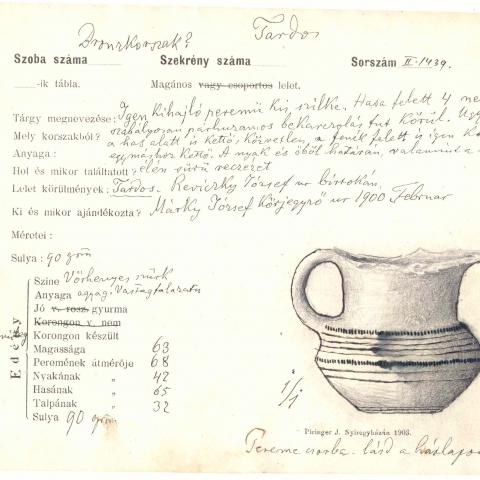 Bronzkorszak? Tardos
Szoba száma Szekrény száma Sorszám II.1439.
-ik tábla. Magános vagy csoportos lelet.
Tárgy megnevezése: Igen kihajló peremü kis szilke. Hasa felett 4
szabályosan párhuzamos bekarczolás fut körül.
Mely korszakból? a has alatt is kettő; közvetlen a fenék felett is igen
Anyaga: egymáshoz kettő. A nyak és öböl határán, valamint a
Hol és mikor találtatott? élén sürü reczézet
Lelet körülmények: Tardos. Reviczky József ur birtokán.
Ki és mikor ajándékozta? Márky József körjegyző ur 1900 Február
Méretei:
Sulya: 90 grm
Edény
Szine Vörhenyes szürk
Anyaga agyag. Vastagfalazatu
Jó v. rosz gyurma
Korongon v. nem
Korongon készült
Magassága 63
Peremének átmérője 68
Nyakának „ 42
Hasának „ 65
Talpának „ 32
Sulya 90 grm
1/1
Piringer J. Nyiregyházán 1903.
Pereme csorba. lásd a hátlapon